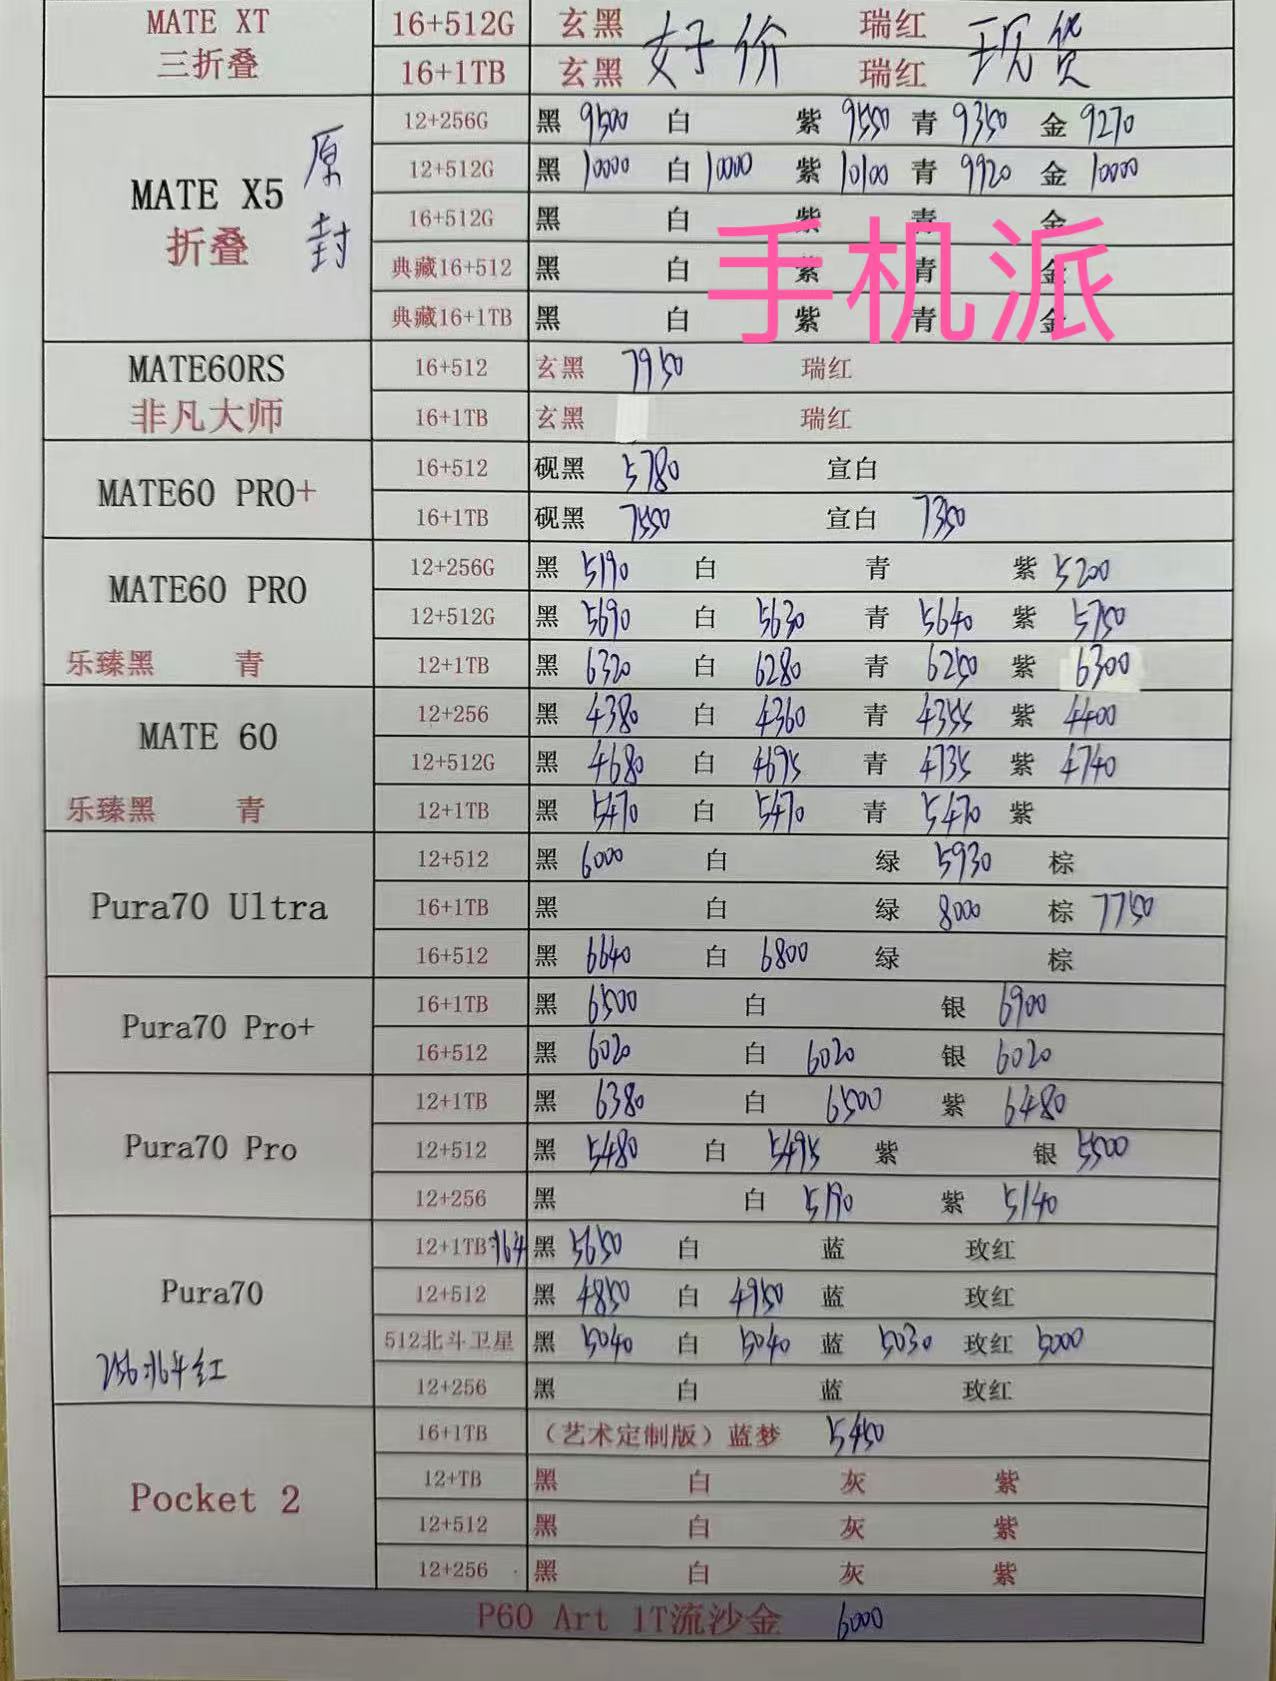 MATE XT 三折叠
16+512G 玄黑 好价 瑞红 现货
16+1TB 玄黑 瑞红
MATE X5 折叠 原封
12+256G 黑 9500 白 紫 9550 青 9350 金 9270
12+512G 黑 10000 白 10000 紫 10100 青 9920 金 10000
16+512G 黑 白 紫 青 金
典藏16+512 黑 白 紫 青 金
典藏16+1TB 黑 白 紫 青 金
手机派
MATE60RS 非凡大师
16+512 玄黑 7950 瑞红
16+1TB 玄黑 瑞红
MATE60 PRO+
16+512 砚黑 5780 宣白
16+1TB 砚黑 7550 宣白 7350
MATE60 PRO
乐臻黑 青
12+256G 黑 5190 白 青 紫 5200
12+512G 黑 5690 白 5630 青 5640 紫 5750
12+1TB 黑 6320 白 6280 青 6250 紫 6300
MATE 60
乐臻黑 青
12+256 黑 4380 白 4360 青 4355 紫 4400
12+512G 黑 4680 白 4695 青 4735 紫 4740
12+1TB 黑 5470 白 5470 青 5470 紫
Pura70 Ultra
12+512 黑 6000 白 绿 5930 棕
16+1TB 黑 白 绿 8000 棕 7750
16+512 黑 6640 白 6800 绿 棕
Pura70 Pro+
16+1TB 黑 6500 白 银 6900
16+512 黑 6020 白 6020 银 6020
Pura70 Pro
12+1TB 黑 6380 白 6500 紫 6480
12+512 黑 5480 白 5495 紫 银 5500
12+256 黑 白 5190 紫 5140
Pura70
256北斗红
12+1TB北斗 黑 5650 白 蓝 玫红
12+512 黑 4850 白 4950 蓝 玫红
512北斗卫星 黑 5040 白 5040 蓝 5030 玫红 5000
12+256 黑 白 蓝 玫红
Pocket 2
16+1TB (艺术定制版)蓝梦 5450
12+TB 黑 白 灰 紫
12+512 黑 白 灰 紫
12+256 黑 白 灰 紫
P60 Art 1T流沙金 6000